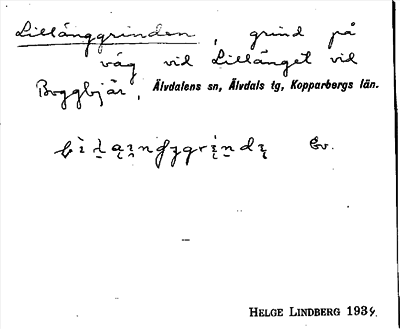 Lillänggrinden, grind på
väg vid Lillänget vid
Byggbjär, Älvdalens sn, Älvdals tg, Kopparbergs län.
Ev.
HELGE LINDBERG 1934.